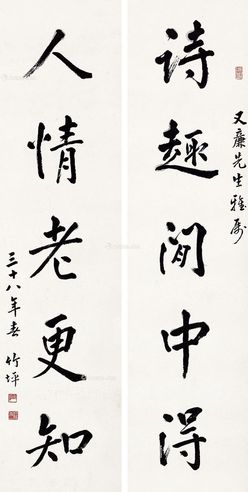 又廉先生雅属
诗趣閒中得
人情老更知
三十八年春 竹坪